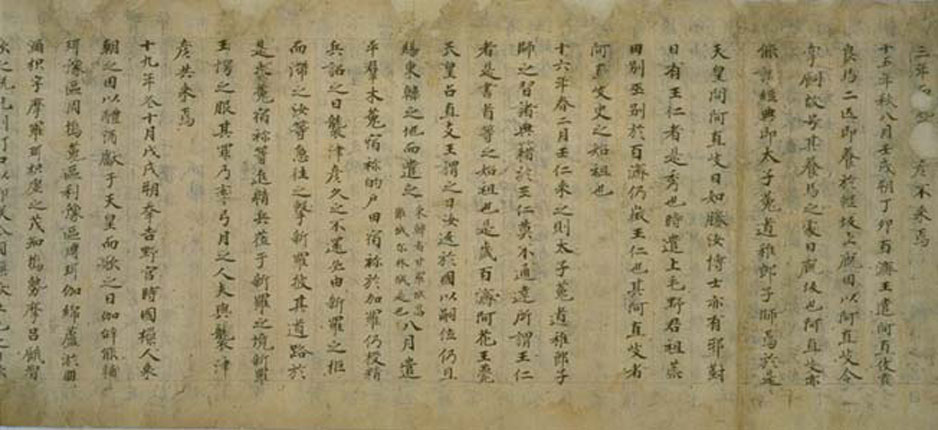 三年 彦不来焉
十五年秋八月壬戌朔丁卯百濟王遣阿直伎貢
良馬二匹即養於軽坂上厩因以阿直岐令
掌飼故号其養馬之處曰厩坂也阿直岐亦
能讀經典即太子菟道稚郎子師焉於是
天皇問阿直岐曰如勝汝博士亦有耶對
曰有王仁者是秀也時遣上毛野君祖荒
田別巫別於百濟仍徴王仁也其阿直岐者
阿直岐史之始祖也
十六年春二月王仁来之則太子菟道稚郎子
師之習諸典籍於王仁莫不通達所謂王仁
者是書首等之始祖也是歳百濟阿花王薨
天皇召直支王謂之曰汝返於國以嗣位仍且
賜東韓之地而遣之東韓者甘羅城高難城尓林城是也八月遣
平群木菟宿祢的戸田宿祢於加羅仍授精
兵詔之曰襲津彦久之不還必由新羅之拒
而滞之汝等急往之撃新羅披其道路於
是木菟宿祢等進精兵莅于新羅之境新羅
王愕之服其罪乃率弓月之人夫與襲津
彦共来焉
十九年冬十月戊戌朔幸吉野宮時國樔人来
朝之因以醴酒獻于天皇而歌之曰伽辭能輔
珥豫區周塢菟區利豫區周珥伽綿蘆淤朋
瀰枳宇摩羅珥枳虚之茂知塢勢摩呂餓智